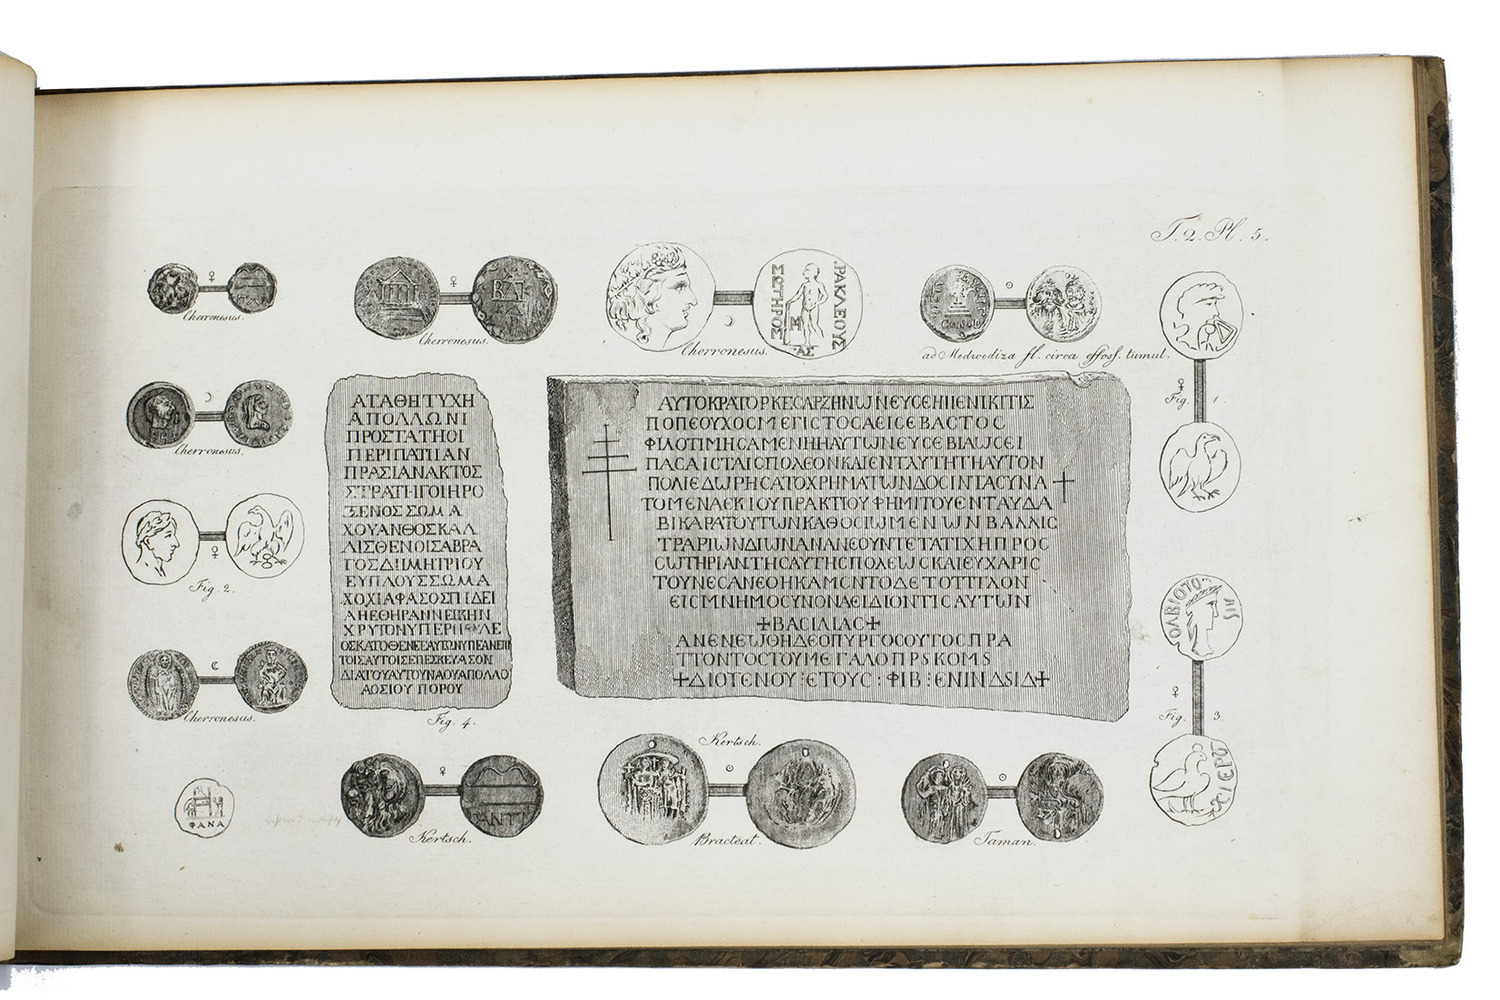 T. 2. Pl. 5.
Cherronesus.
Cherronesus.
ΣΩΤΗΡΟΣ
ΡΑΚΛΕΟΥΣ
Μ
ΑΣ
Cherronesus.
ad Medwediza fl. circa effoss. tumul.
Fig. 1.
Cherronesus.
Fig. 2.
Cherronesus.
ΦΑΝΑ
ΑΤΑΘΗ ΤΥΧΗ
ΑΠΟΛΛΩΝΙ
ΠΡΟΣΤΑΤΗΟΙ
ΠΕΡΙΠΑΠΙΑΝ
ΠΡΑΣΙΑΝΑΚΤΟΣ
ΣΤΡΑΤΗΓΟΙΗΡΟ
ΞΕΝΟΣΣΩΜΑ
ΧΟΥΑΝΘΟΣΚΑΛ
ΛΙΣΘΕΝΟΙΣΑΒΡΑ
ΓΟΣΔΙΙΜΗΤΡΙΟΥ
ΕΥΠΛΟΥΣΣΩΜΑ
ΧΟΧΙΑΦΑΣΟΣΠΙΔΕΙ
ΑΗΕΘΗΡΑΝΝΕΙΚΗΝ
ΔΙΑΤΟΥΑΥΤΟΥΝΑΟΥΑΠΟΛΛΟ
ΑΟΣΙΟΥ ΠΟΡΟΥ
Fig. 4.
ΑΥΤΟΚΡΑΤΟΡΚΕϹΑΡΖΗΝΩΝΕΥϹΕΗΙΕΝΙΚΙΤΙΣ
ΠΟΠΕΟΥΧΟϹΜΕΓΙϹΤΟϹΑΕΙϹΕΒΑϹΤΟϹ
ΦΙΛΟΤΙΜΗϹΑΜΕΝΗΗΑΥΤΩΝΕΥϹΕΒΙΑΩϹΕΙ
ΠΑϹΑΙϹΤΑΙϹΠΟΛΕΟΝΚΑΙΕΝΤΑΥΤΗΤΗΑΥΤΟΝ
ΠΟΛΙΕΔΩΡΗϹΑΤΟΧΡΗΜΑΤΩΝΔΟϹΙΝΤΑϹΥΝΑ
ΤΟΜΕΝΑΕΚΙΟΥΠΡΑΚΤΙΟΥΦΗΜΙΤΟΥΕΝΤΑΥΔΑ
ΒΙΚΑΡΑΤΟΥΤΩΝΚΑΘΟϹΙΩΜΕΝΩΝΒΑΛΛΙϹ
ΤΡΑΡΙΩΝΔΙΩΝΑΝΑΝΕΟΥΝΤΕΤΑΤΙΧΗΠΡΟϹ
ϹΩΤΗΡΙΑΝΤΗϹΑΥΤΗϹΠΟΛΕΩϹΚΑΙΕΥΧΑΡΙϹ
ΤΟΥΝΕϹΑΝΕΘΗΚΑΜϹΝΤΟΔΕΤΟΤΙΤΛΟΝ
ΕΙϹΜΝΗΜΟϹΥΝΟΝΑΕΙΔΙΟΝΤΙϹΑΥΤΩΝ
+ΒΑϹΙΛΙΑϹ+
ΑΝΕΝΕΩΘΗΔΕΟΠΥΡΓΟϹΟΥΤΟϹΠΡΑ
ΤΤΟΝΤΟϹΤΟΥΜΕΓΑΛΟΠΡϚΚΟΜϚ
+ΔΙΟΤΕΝΟΥ⁝ΕΤΟΥϹ:ΦΙΒ⁝ΕΝΙΝΔϚΙΔ+
ΟΛΒΙΟΠΟ
Fig. 3.
Kertsch.
Kertsch.
Bracteat.
Taman.